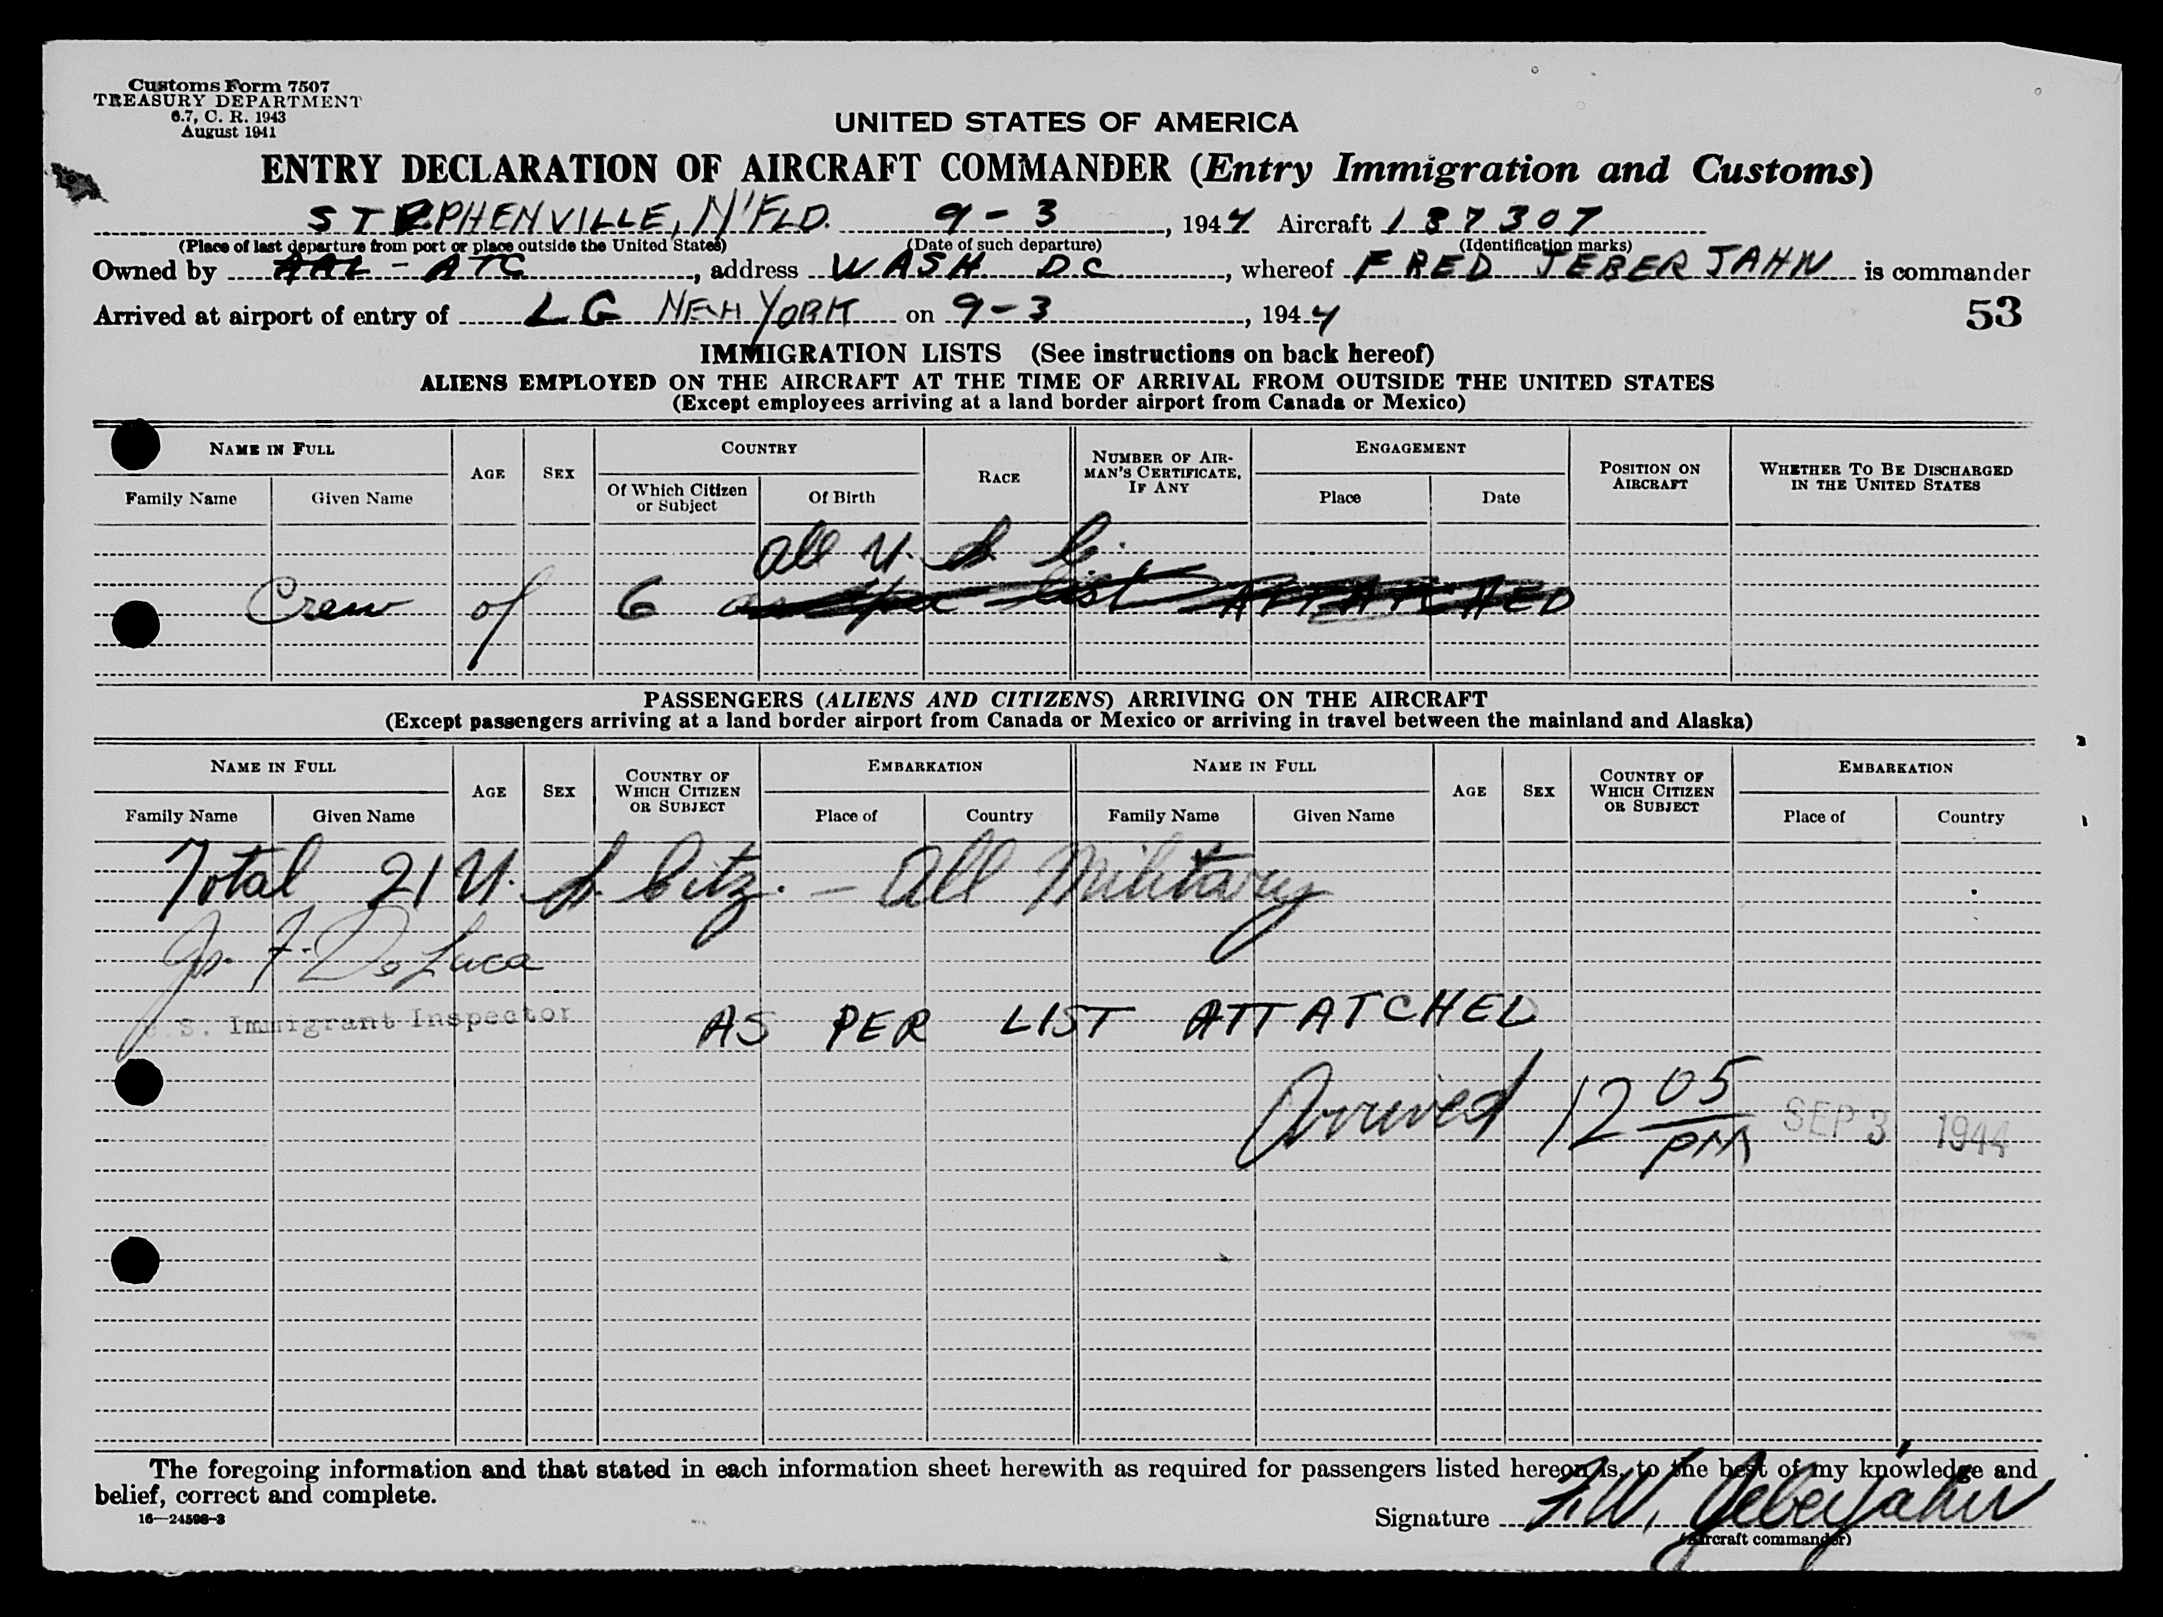 Customs Form 7507
TREASURY DEPARTMENT
6.7, C. R. 1943
August 1941
UNITED STATES OF AMERICA
ENTRY DECLARATION OF AIRCRAFT COMMANDER (Entry Immigration and Customs)
STEPHENVILLE, N'FLD. 9-3, 1944 Aircraft 137307
(Place of last departure from port or place outside the United States) (Date of such departure) (Identification marks)
Owned by AAL - ATC, address WASH DC, whereof FRED JEBERJAHN is commander
Arrived at airport of entry of LG NEW YORK on 9-3, 1944
53
IMMIGRATION LISTS (See instructions on back hereof)
ALIENS EMPLOYED ON THE AIRCRAFT AT THE TIME OF ARRIVAL FROM OUTSIDE THE UNITED STATES
(Except employees arriving at a land border airport from Canada or Mexico)
NAME IN FULL AGE SEX COUNTRY RACE NUMBER OF AIRMAN'S CERTIFICATE, IF ANY ENGAGEMENT POSITION ON AIRCRAFT WHETHER TO BE DISCHARGED IN THE UNITED STATES
Family Name Given Name Of Which Citizen or Subject Of Birth Place Date
All U. S. C.
Crew of 6 as per list ATTATCHED
PASSENGERS (ALIENS AND CITIZENS) ARRIVING ON THE AIRCRAFT
(Except passengers arriving at a land border airport from Canada or Mexico or arriving in travel between the mainland and Alaska)
NAME IN FULL AGE SEX COUNTRY OF WHICH CITIZEN OR SUBJECT EMBARKATION NAME IN FULL AGE SEX COUNTRY OF WHICH CITIZEN OR SUBJECT EMBARKATION
Family Name Given Name Place of Country Family Name Given Name Place of Country
Total 21 U. S. Citz. - All Military
Jos. F. DeLuca
U.S. Immigrant Inspector
AS PER LIST ATTATCHED
Arrived 12 05 PM SEP 3 1944
The foregoing information and that stated in each information sheet herewith as required for passengers listed hereon is, to the best of my knowledge and
belief, correct and complete.
16—24598-3
Signature F.W. Jeberjahn
(Aircraft commander)